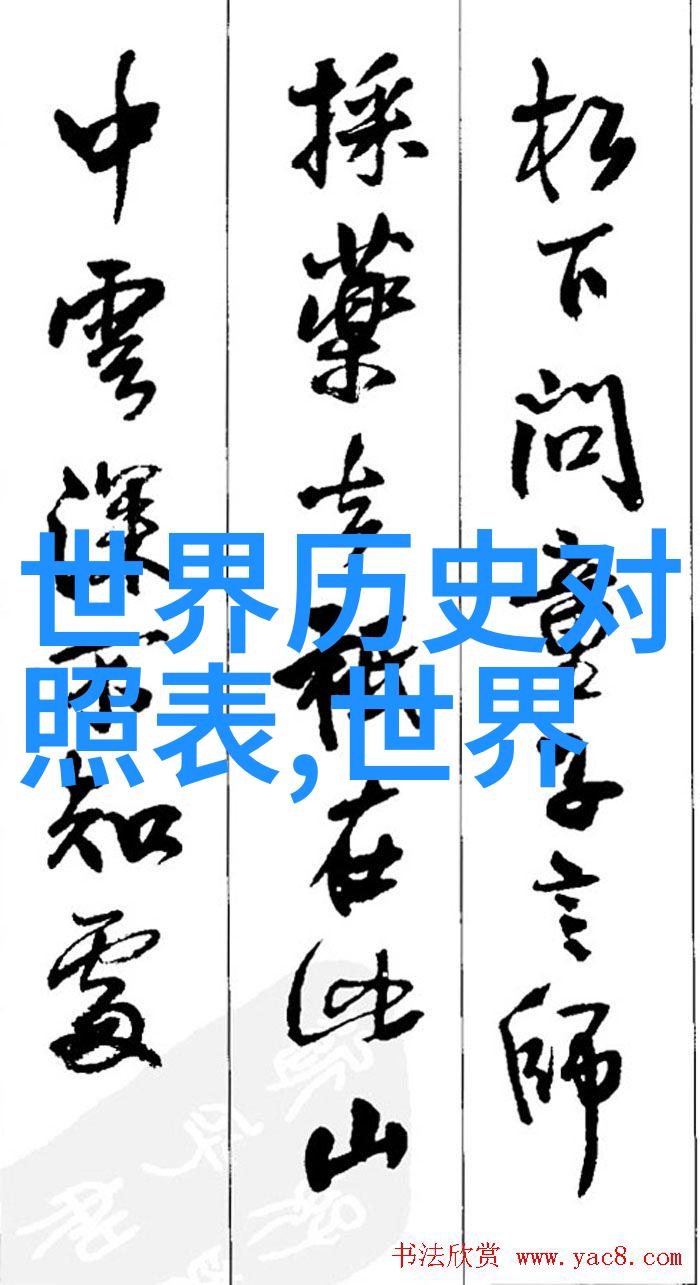 松下问童子言師
採藥去祇在此山
中雲深不知處
世界历史对
照表,世界
书法欣赏 www.yac8.com